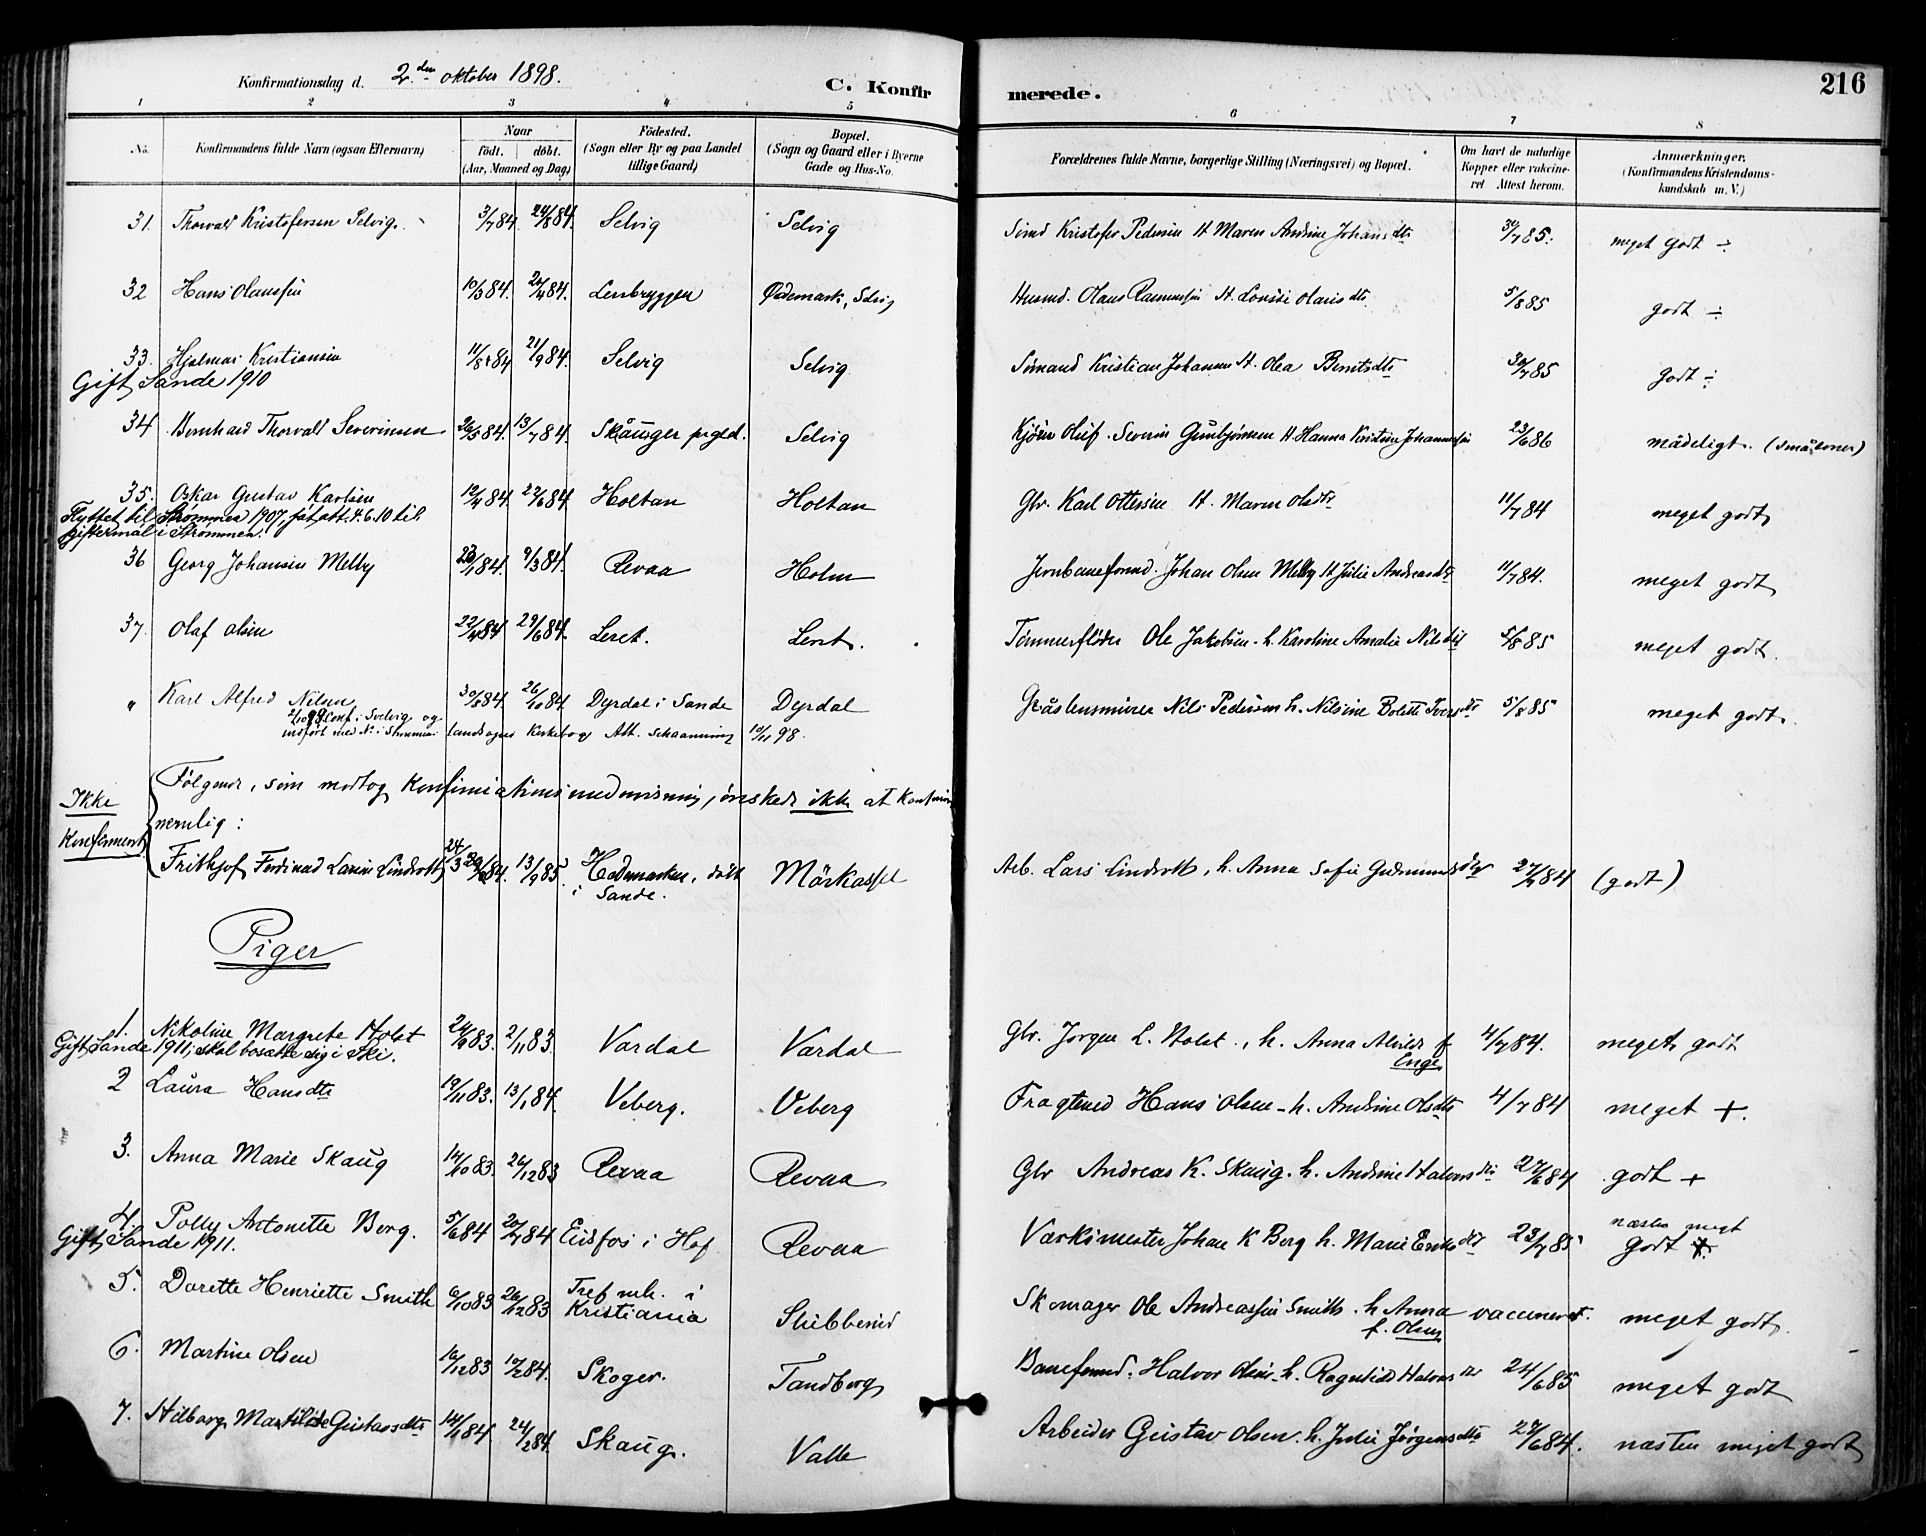 Konfirmationsdag d. 2den oktober 1898.
C. Konfirmerede.
216
1 2 3 4 5 6 7 8
No. Konfirmandens fulde Navn (ogsaa Efternavn) Naar födt. döbt. (Aar, Maaned og Dag) Födested. (Sogn eller By og paa Landet tillige Gaard) Bopæl. (Sogn og Gaard eller i Byerne Gade og Hus-No. Forældrenes fulde Navne, borgerlige Stilling (Næringsvei) og Bopæl. Om havt de naturlige Kopper eller vakcineret Attest herom. Anmærkninger. (Konfirmandens Kristendomskundskab m. V.)
31. Thorvald Kristofersen Selvig. 3/7 84. 24/8 84. Selvig Selvig Sömd Kristofer Pedersen H Maren Andrine Johansdtr 31/7 85. meget godt ÷
32 Hans Olaussen 10/3 84. 27/4 84. Lersbryggen Ødemark, Selvig Husmd. Olaus Rasmussen H. Lovise Olausdtr. 5/8 85 godt ÷
33. Hjalmar Kristiansen 11/8 84 21/9 84. Selvig Selvig Sömand Kristian Johansen H. Olea Berntsdtr 30/7 85 godt ÷
Gift Sande 1910
34 Bernhard Thorvald Severinsen 26/5 84. 13/7 84. Skåuger prgjd. Selvig Oluf Severin Gunbjörnsen H Hanna Kristine Johannessen 23/6 86 mådeligt.
35. Oskar Gustav Karlsen 12/4 84. 22/6 84. Holtan Holtan Gbr. Karl Ottersen H. Maren Olsdtr 11/7 84 meget godt
Flyttet til Strömmen 1907, fåt att. 4.6.10 til giftermål i Strömmen.
36 Georg Johansen Melby 23/1 84. 9/3 84. Revaa Holm Jernbaneformd. Johan Olsen Melby H Julie Andreasdtr 11/7 84. meget godt
37. Olaf Olsen 22/4 84 29/6 84. Leret. Leret. Tömmerflöder Ole Jakobsen h. Karoline Amalie Nilsdtr 5/8 85 meget godt.
" Karl Alfred Nilsen 30/8 84. 26/10 84. Dyrdal i Sande Dyrdal Gråstensmurer Nils Pedersen h. Nilsine Bolette Iversdtr 5/8 85 meget godt.
2/10 98 Conf. i Svelvig og
indfört med No. i Strömm Landsogns Kirkebog Att. Schaanning 10/11 98.
Ikke Konfirmeret
Fölgende, som modtog Konfirmationsundervisning, önskede ikke at Konfirm
nemlig:
Frithjof Ferdinad Larsen Lindroth 24/3 84. 13/9 85. Hedemarken, döbt i Sande. Mörkassel Arb. Lars Lindroth, h. Anna Sofie Gudmundsdtr 27/7 84 (godt)
Piger
1. Nikoline Margrete Holst 24/9 83. 2/11 83. Vardal Vardal Gbr. Jorgen L. Holst., h. Anna Alvilde f. Enge 4/7 84. meget godt
Gift Sande 1911; skal bosætte sig i Ski.
2 Laura Hansdtr 19/11 83. 13/1 84. Veberg. Veberg Fragtemd Hans Olsen - h. Andrine Olsdtr 4/7 84 meget +.
3. Anna Marie Skaug 14/10 83. 26/12 83 Revaa Revaa Gbr Andreas K. Skaug. h. Andrine Halvorsdtr 27/6 84 godt +
4. Polly Antonette Berg. 5/6 84 20/7 84 Eidsfos i Hof. Revaa Værksmester Johan K Berg h. Marie Eriksdtr 23/7 85 næsten meget godt
Gift Sande 1911.
5. Dorette Henriette Smith 6/10 83 26/12 83 Tref. mh. i Kristiania Stibberud Skomager Ole Andreassen Smith. h Anna f. Olsen vaccineret. meget godt.
6. Martine Olsen 16/12 83 10/2 84. Skoger. Tandberg Baneformd. Halvor Olsen h. Ragnhild Halvorsdtr 24/6 85 meget godt
7. Hilborg Matilde Gustavsdtr 14/1 84 24/2 84. Skaug. Valle Arbeider Gustav Olsen. h. Julie Jörgensdtr 27/6 84. næsten meget godt